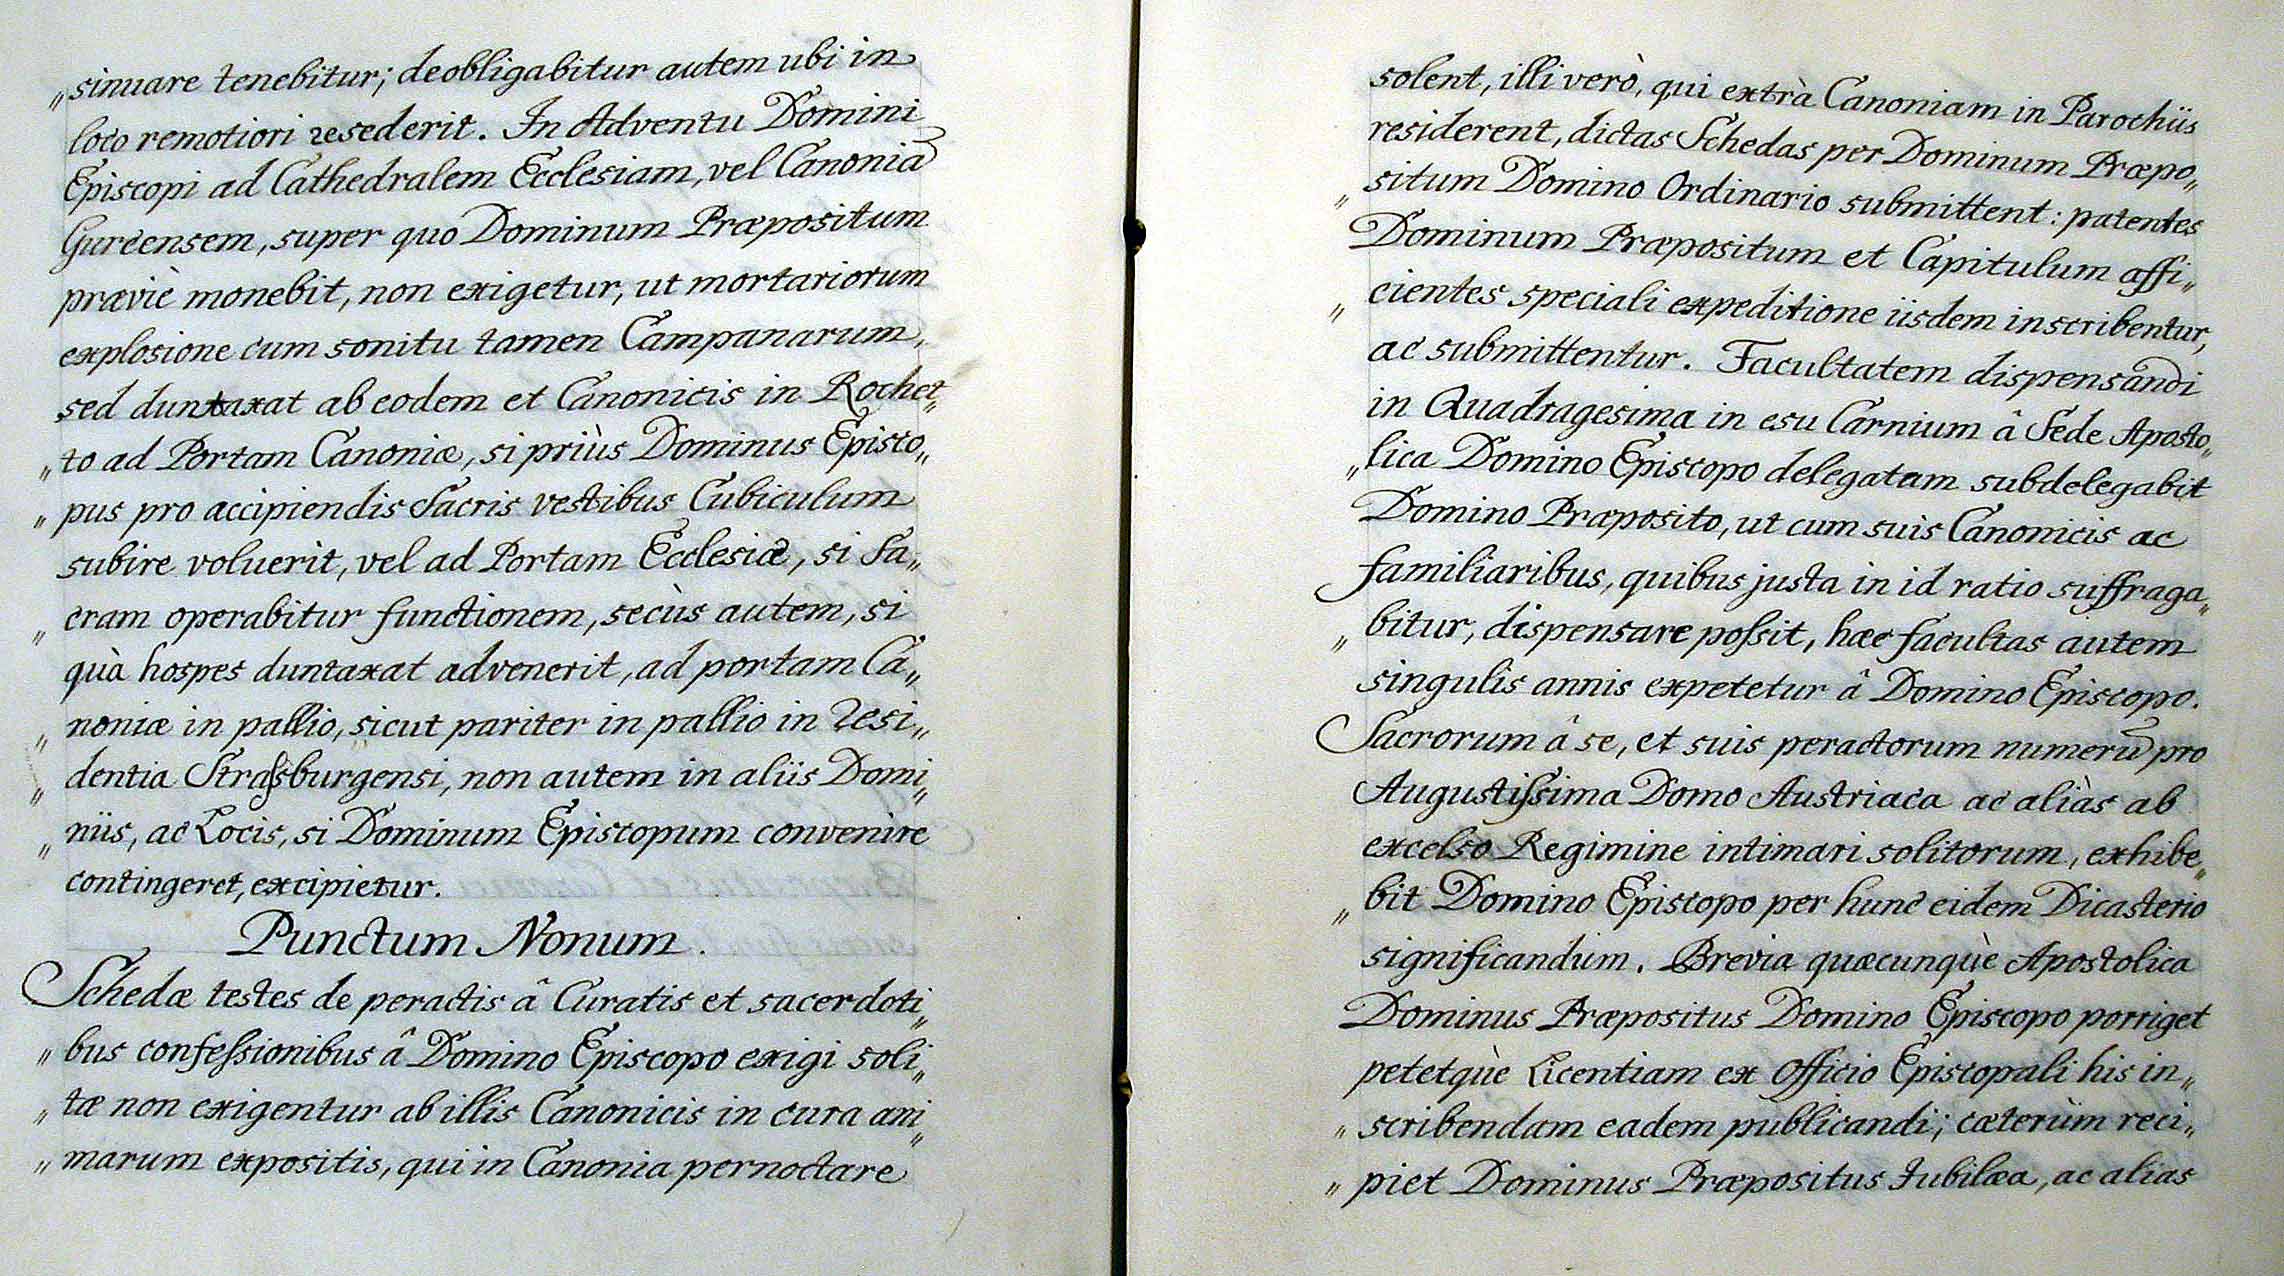 „sinuare tenebitur; deobligabitur autem ubi in
loco remotiori resederit. In Adventu Domini
Episcopi ad Cathedralem Ecclesiam, vel Canoniã
Gurcensem, super quo Dominum Præpositum
præviè monebit, non exigetur, ut mortariorum
explosione cum sonitu tamen Campanarum,
sed duntaxat ab eodem et Canonicis in Rochet„
„to ad Portam Canoniæ, si priùs Dominus Episco„
„pus pro accipiendis Sacris vestibus Cubiculum
subire voluerit, vel ad Portam Ecclesiæ, si Sa„
„cram operabitur functionem, secùs autem, si
quà hospes duntaxat advenerit, ad portam Ca„
„noniæ in pallio, sicut pariter in pallio in resi„
„dentia Straſsburgensi, non autem in aliis Domi„
„niis, ac Locis, si Dominum Episcopum convenire
contingeret, excipietur.
Punctum Nonum.
Schedæ testes de peractis â Curatis et sacerdoti„
„bus confeſsionibus â Domino Episcopo exigi soli„
„tæ non exigentur ab illis Canonicis in cura ani„
„marum expositis, qui in Canonia pernoctare
solent, illi verò, qui extrà Canoniam in Parochiis
residerent, dictas Schedas per Dominum Præpo„
„situm Domino Ordinario submittent: patentes
Dominum Præpositum et Capitulum affi„
„cientes speciali expeditione iisdem inscribentur,
ac submittentur. Facultatem dispensandi
in Quadragesima in esu Carnium â Sede Aposto„
„lica Domino Episcopo delegatam subdelegabit
Domino Præposito, ut cum suis Canonicis ac
familiaribus, quibus justa in id ratio suffraga„
„bitur, dispensare poſsit, hæc facultas autem
singulis annis expetetur â Domino Episcopo.
Sacrorum â se, et suis peractorum numerũ pro
Augustiſsima Domo Austriaca ac aliàs ab
excelso Regimine intimari solitorum, exhibe„
„bit Domino Episcopo per hunc eidem Dicasterio
significandum. Brevia quæcunquè Apostolica
Dominus Præpositus Domino Episcopo porriget
petetquè Licentiam ex Officio Episcopali his in„
„scribendam eadem publicandi; cæterùm reci„
„piet Dominus Præpositus Jubilæa, ac alias